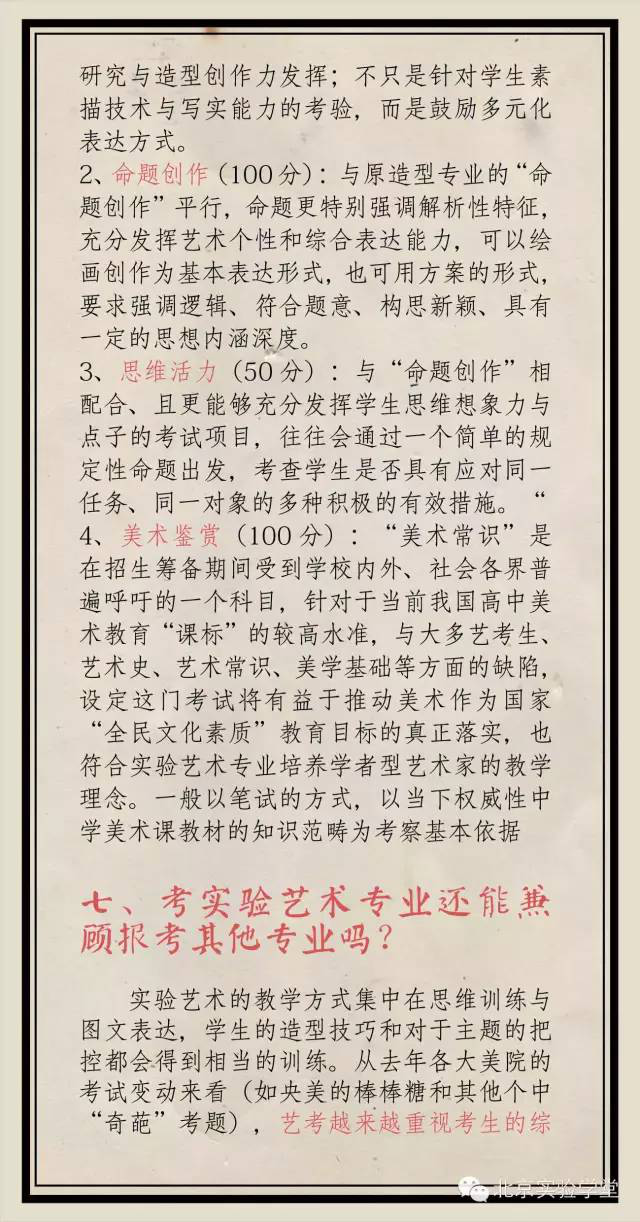 研究与造型创作力发挥；不只是针对学生素
描技术与写实能力的考验，而是鼓励多元化
表达方式。
2、命题创作（100分）：与原造型专业的“命
题创作”平行，命题更特别强调解析性特征，
充分发挥艺术个性和综合表达能力，可以绘
画创作为基本表达形式，也可用方案的形式，
要求强调逻辑、符合题意、构思新颖、具有
一定的思想内涵深度。
3、思维活力（50分）：与“命题创作”相
配合、且更能够充分发挥学生思维想象力与
点子的考试项目，往往会通过一个简单的规
定性命题出发，考查学生是否具有应对同一
任务、同一对象的多种积极的有效措施。“
4、美术鉴赏（100分）：“美术常识”是
在招生筹备期间受到学校内外、社会各界普
遍呼吁的一个科目，针对于当前我国高中美
术教育“课标”的较高水准，与大多艺考生、
艺术史、艺术常识、美学基础等方面的缺陷，
设定这门考试将有益于推动美术作为国家
“全民文化素质”教育目标的真正落实，也
符合实验艺术专业培养学者型艺术家的教学
理念。一般以笔试的方式，以当下权威性中
学美术课教材的知识范畴为考察基本依据
七、考实验艺术专业还能兼
顾报考其他专业吗？
实验艺术的教学方式集中在思维训练与
图文表达，学生的造型技巧和对于主题的把
控都会得到相当的训练。从去年各大美院的
考试变动来看（如央美的棒棒糖和其他个中
“奇葩”考题），艺考越来越重视考生的综
北京实验学堂